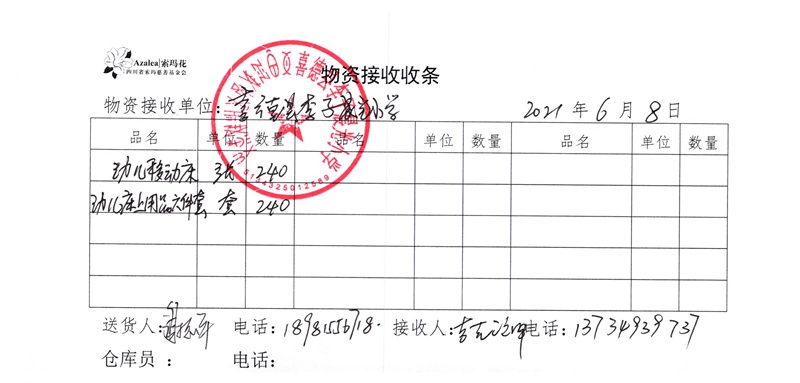 Azalea|索玛花
四川省索玛慈善基金会
物资接收收条
物资接收单位：喜德县李子 小学 2021年6月8日
品名 单位 数量 品名 单位 数量 品名 单位 数量
幼儿移动床 张 240
幼儿床上用品六件套 套 240
送货人： 电话： 接收人： 电话：13734939737
仓库员： 电话：
5134325012569